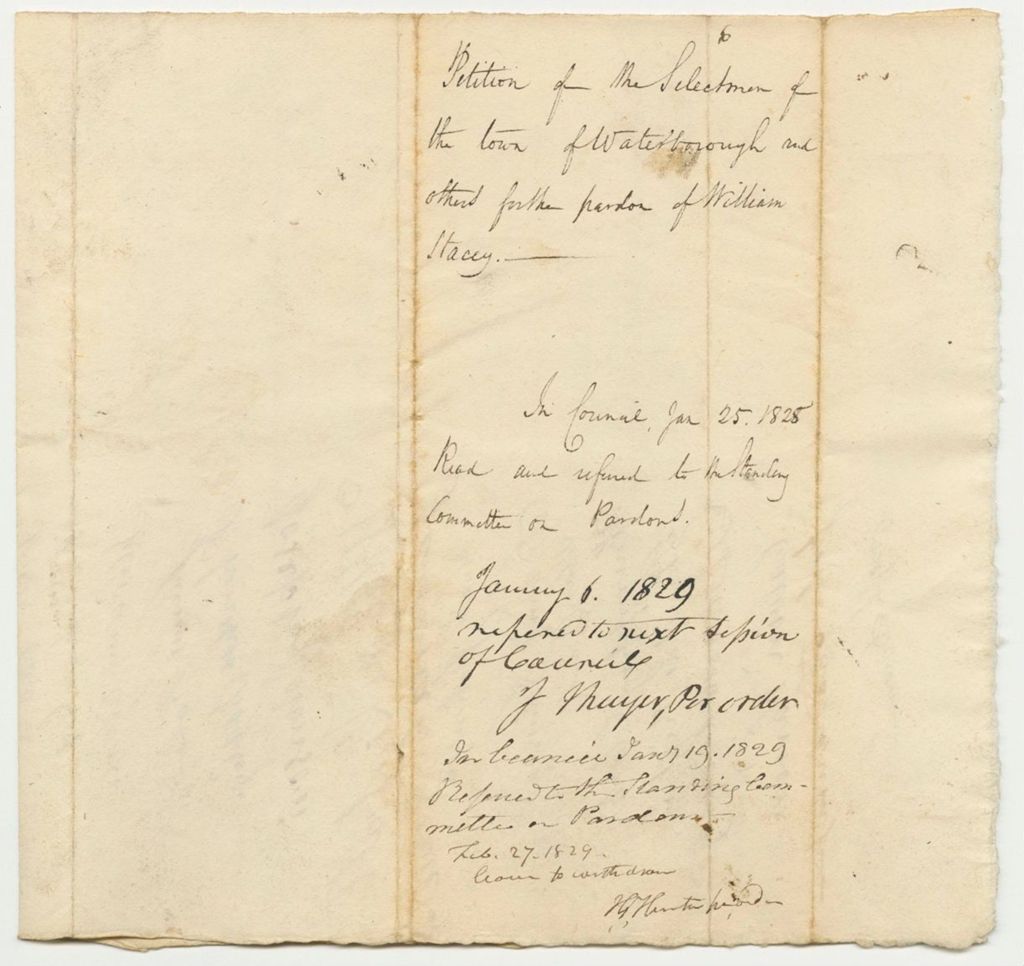 6
Petition of the Selectmen of
the town of Waterborough and
others for the pardon of William
Stacey.
In Council, Jan 25. 1828
Read and referred to the Standing
Committee on Pardons.
January 6. 1829
referred to next Session
of Council
J Thayer, Per order
In Council Jany 19. 1829
Referred to the Standing Com-
mittee on Pardons
Feb. 27. 1829.
leave to withdraw
Hunter pr order